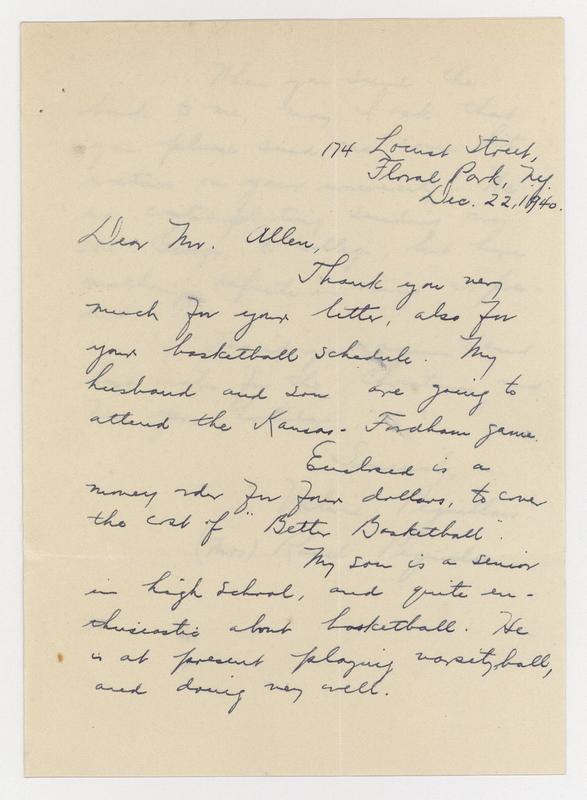 174 Locust Street,
Floral Park, N.Y.
Dec. 22, 1940.
Dear Mr. Allen,
Thank you very
much for your letter, also for
your basketball schedule. My
husband and son are going to
attend the Kansas - Fordham game.
Enclosed is a
money order for four dollars, to cover
the cost of "Better Basketball".
My son is a senior
in high school, and quite en-
thusiastic about basketball. He
is at present playing varsity ball,
and doing very well.